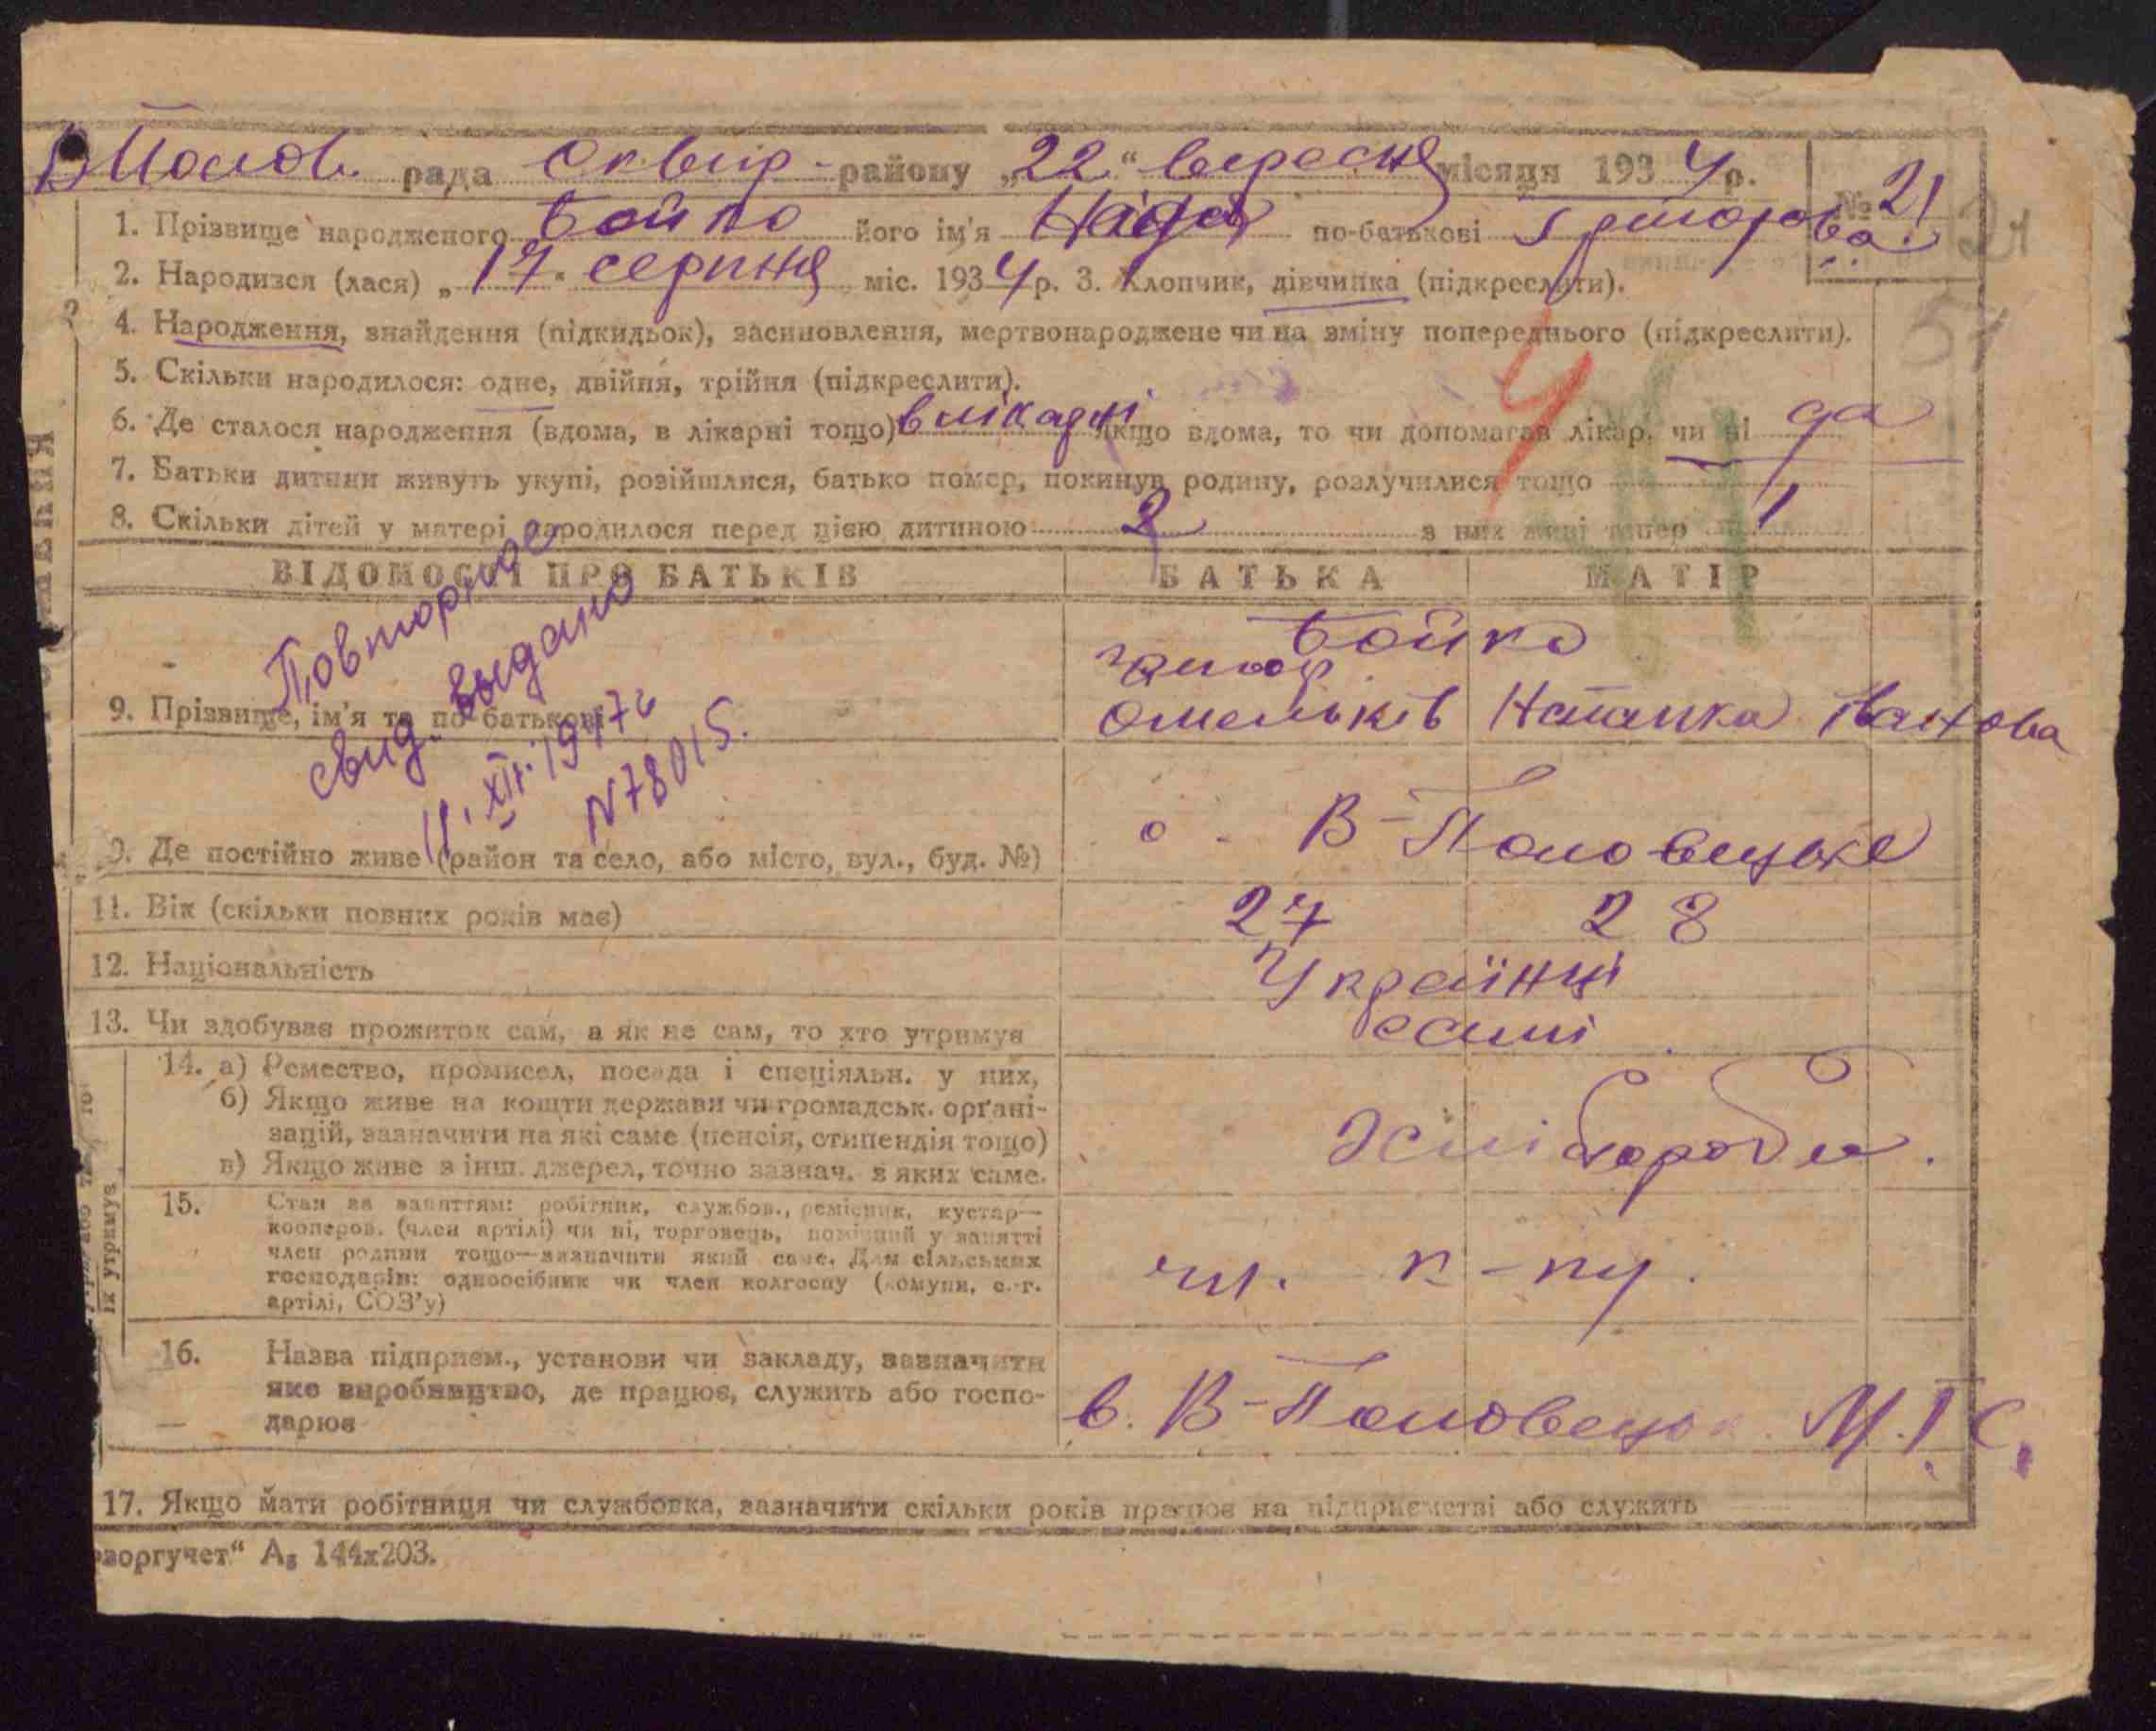 В Полов. рада Сквир- району „22“ вересня місяця 1934 р.
№ 21
1. Прізвище народженого Бойко його ім'я Надя по-батькові Григорова
21
2. Народився (лася) „17“ серпня міс. 1934 р. 3. Хлопчик, дівчинка (підкреслити).
4. Народження, знайдення (підкидьок), засиновлення, мертвонароджене чи на зміну попереднього (підкреслити).
5. Скільки народилося: одне, двійня, трійня (підкреслити).
6. Де сталося народження (вдома, в лікарні тощо) в лікарні якщо вдома, то чи допомагав лікар, чи ні да
7. Батьки дитини живуть укупі, розійшлися, батько помер, покинув родину, розлучилися тощо
8. Скільки дітей у матері народилося перед цією дитиною 2 з них живі тепер 1
ВІДОМОСТІ ПРО БАТЬКІВ БАТЬКА МАТІР
Повторное
свид. выдано
11. XII. 1947 г
N 78015.
Бойко
9. Прізвище, ім'я та по батькові
Омельків Наталка Іванова
Де постійно живе (район та село, або місто, вул., буд. №) В-Половецьке
11. Вік (скільки повних років має) 27 28
12. Національність Українці
13. Чи здобуває прожиток сам, а як не сам, то хто утримує самі
14. а) Ремество, промисел, посада і спеціяльн. у них,
б) Якщо живе на кошти держави чи громадськ. орґані-
зацій, зазначити на які саме (пенсія, стипендія тощо)
в) Якщо живе з інш. джерел, точно зазнач. з яких саме.
Хліборобы.
15. Стан за заняттям: робітник, службов., ремісник, кустар—
кооперов. (член артілі) чи ні, торговець, помічний у занятті
член родини тощо—зазначити який саме. Для сільських
господарів: одноосібник чи член колгоспу (комуни, с.-г.
артілі, СОЗ'у)
чл. к-пу.
16. Назва підприєм., установи чи закладу, зазначити
яке виробництво, де працює, служить або госпо-
дарює
в. В-Половецьк М.Т.С.
17. Якщо мати робітниця чи службовка, зазначити скільки років працює на підприємстві або служить
оргучет“ А₅ 144х203.
их утримує